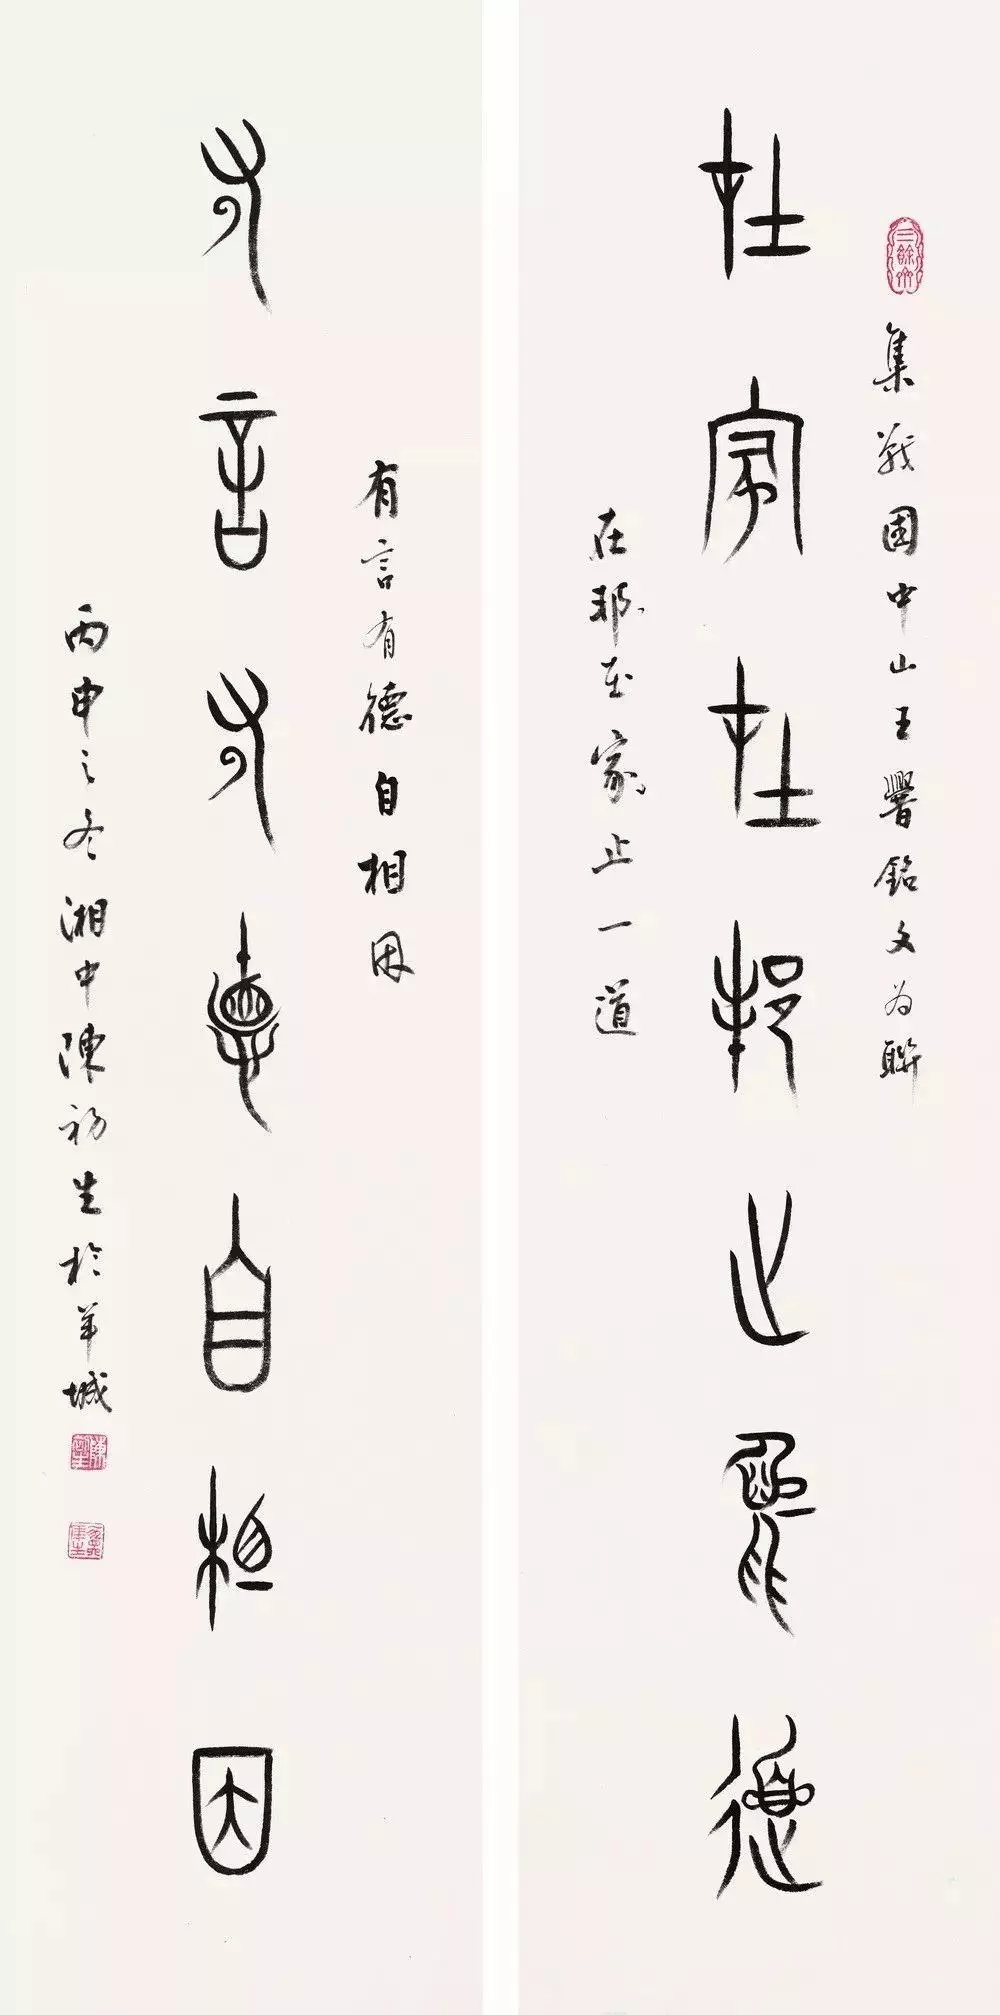 三餘齋
集戰國中山王銘文为聯
在家在邦止一道
在邦在家止一道
有言有德自相因
有言有德自相因
丙申之冬湘中陳初生於羊城
陳初生